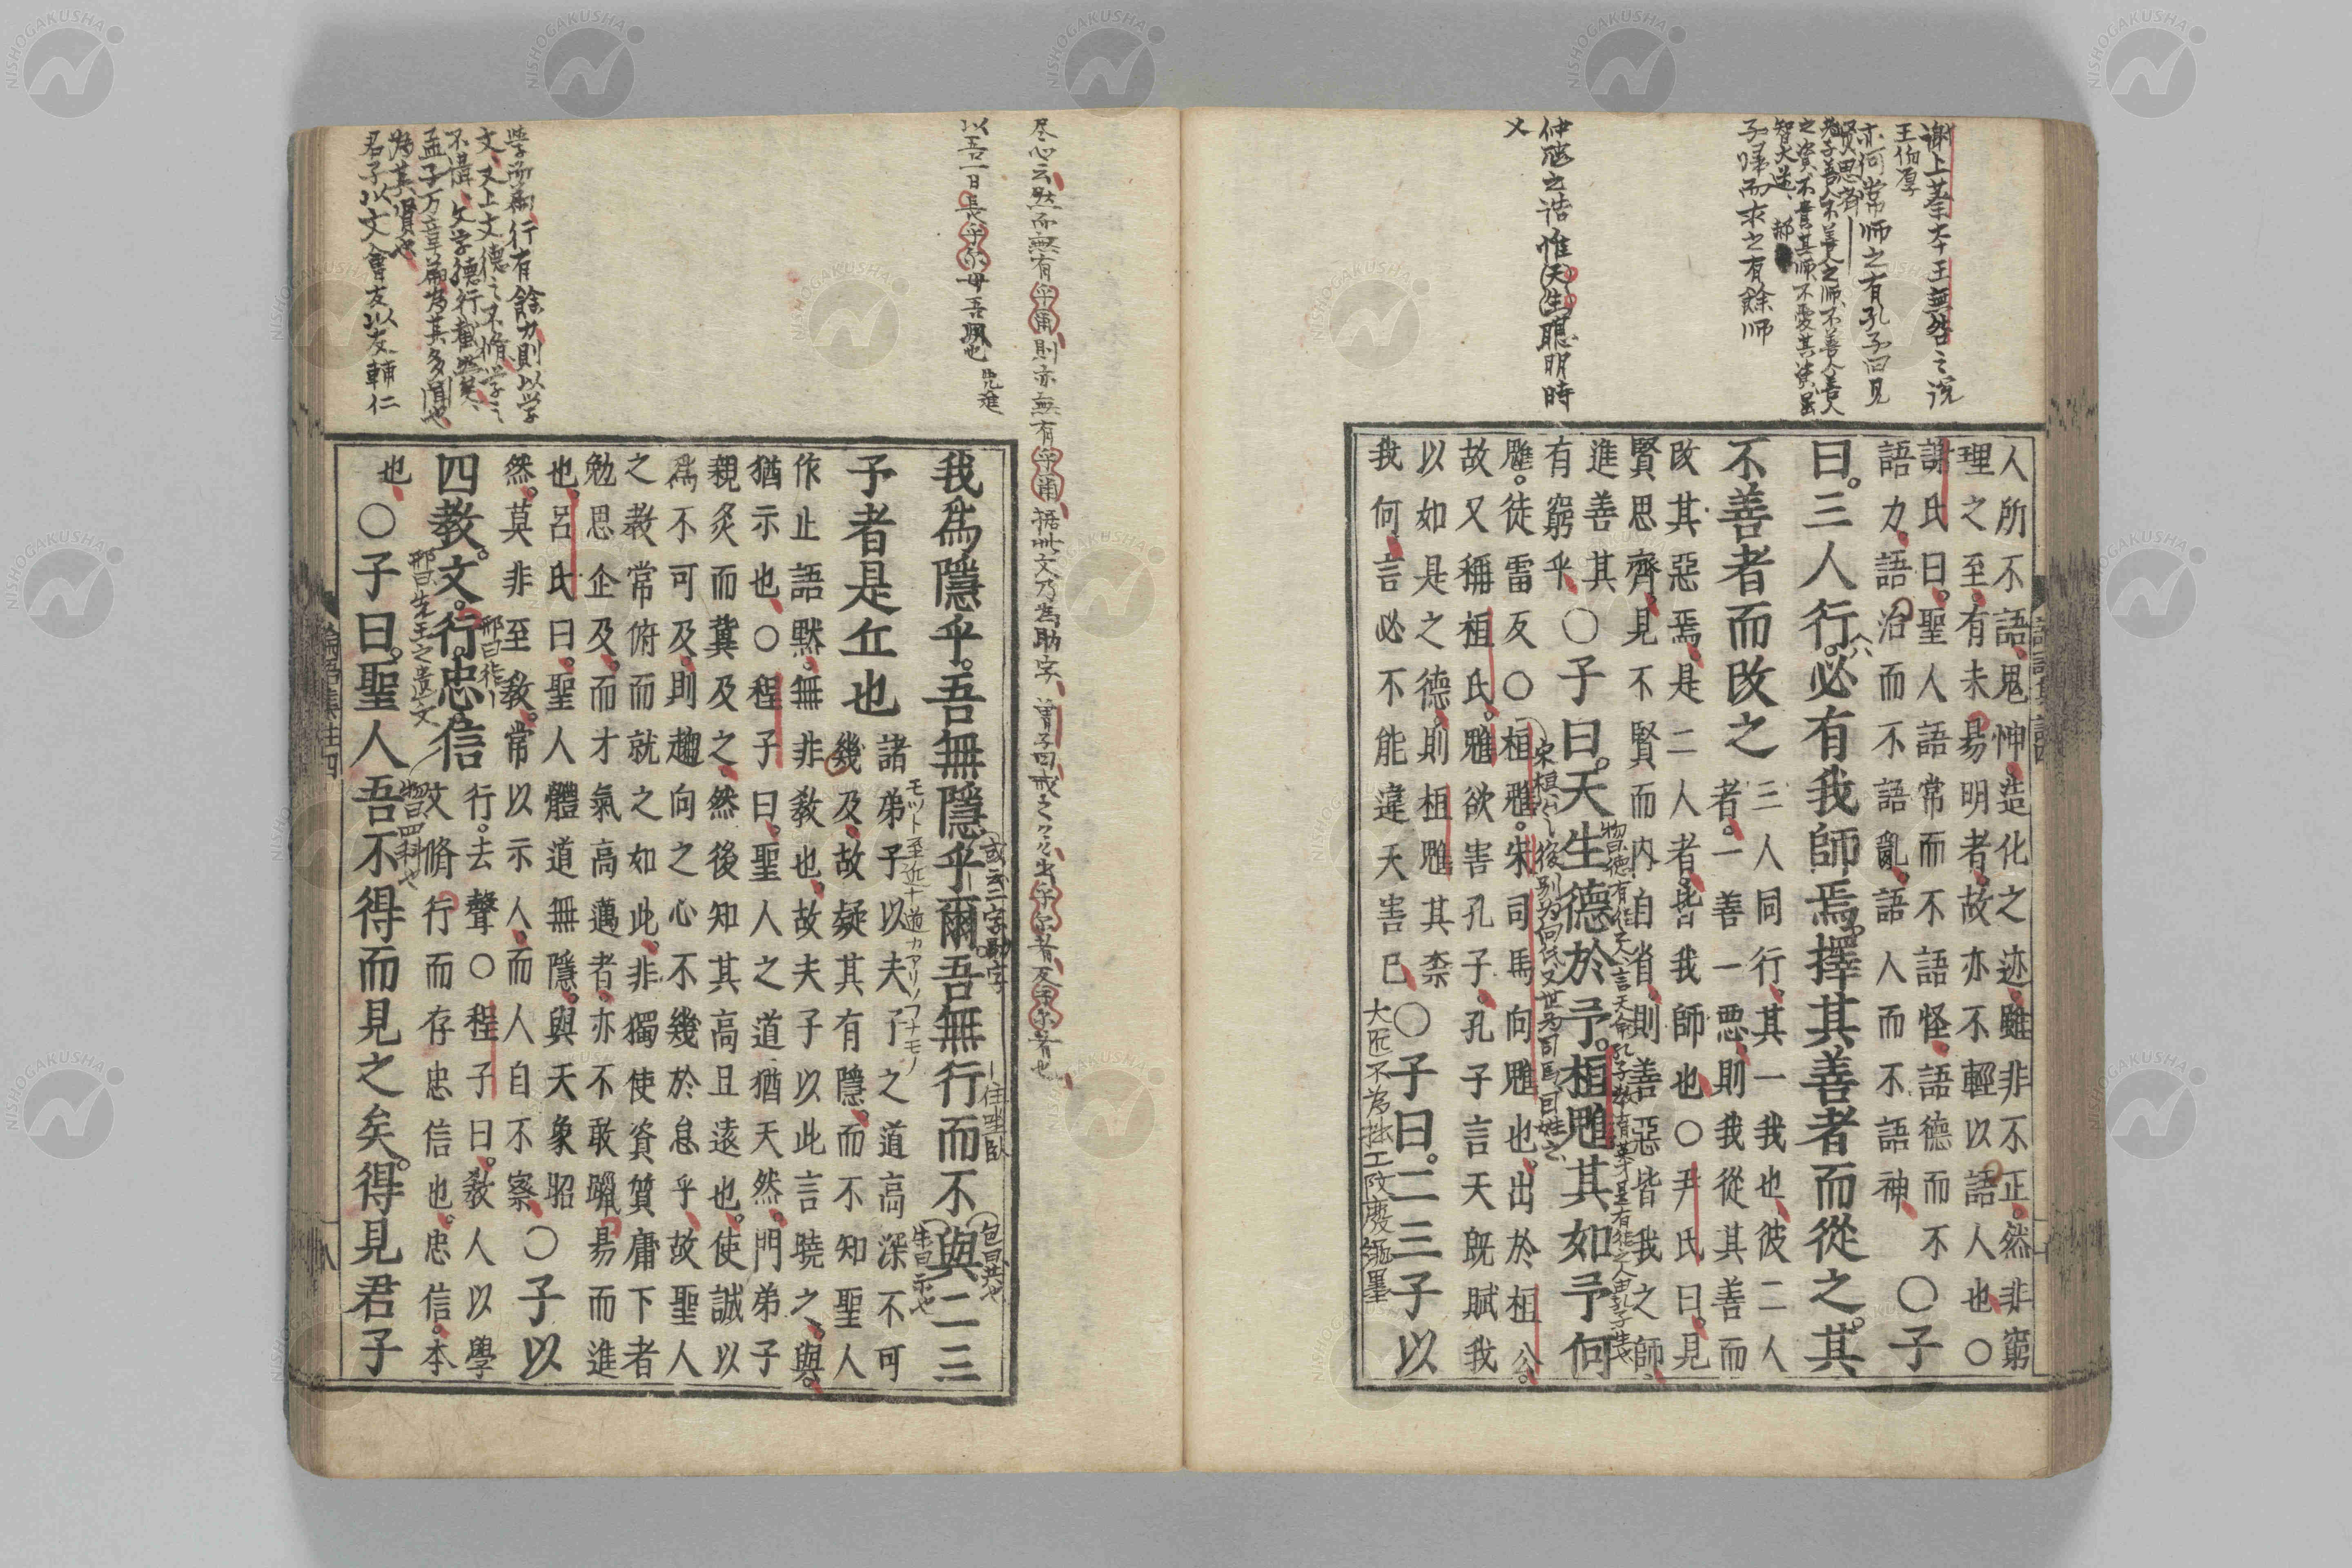 謝上蔡太王無咎之説
王伯厚
亦何常師之有孔子曰見
賢思斉
老子善人不善人之師不善人善人
之資不貴其師不愛其資雖
智大迷
子帰而求之有餘師
仲虺之誥惟天生聰明時
乂
人所不語。鬼神造化之迹。雖非不正。然非窮
理之至。有未易明者。故亦不輕以語人也○
謝氏曰。聖人語常而不語怪。語德而不
語力。語治而不語亂。語人而不語神、○子
曰。三人行。必有我師焉。擇其善者而從之。其
不善者而改之 三人同行。其一我也。彼二人
者。一善一惡。則我從其善而
改其惡焉。是二人者。皆我師也○尹氏曰。見
賢思齊。見不賢而內自省。則善惡皆我之師、
進善其
有窮乎、○子曰。天生德於予。桓魋其如予何
魋。徒雷反○桓魋。宋司馬向魋也。出於桓公。
故又稱桓氏。魋欲害孔子。孔子言天既賦我
以如是之德。則桓魋其柰
我何、言必不能違天害已、○子曰。二三子以
大匠不為拙工改廢繩墨
尽心云然而無有乎爾則亦無有乎爾據此文乃為助字
以吾一日長乎爾毋吾以也 先進
學而篇行有餘力則以学
文又上文德之不脩学之
不講
孟子万章篇為其多聞也
為其賢也
君子以文會友以友輔仁
我爲隱乎。吾無隱乎爾。吾無行而不與二三
或云二字助字
子者是丘也 諸弟子以夫子之道高深不可
幾及。故疑其有隱。而不知聖人
作止語默。無非教也。故夫子以此言曉之。與。
猶示也、○程子曰。聖人之道猶天然。門弟子
親炙而冀及之。然後知其高且遠也。使誠以
爲不可及。則趨向之心不幾於怠乎。故聖人
之教常俯而就之如此。非獨使資質庸下者
勉思企及。而才氣高邁者。亦不敢躐易而進
也。呂氏曰。聖人體道無隱。與天象昭
然。莫非至教。常以示人。而人自不察、○子以
四教。文。行。忠。信 行。去聲○程子曰。教人以學
文脩行而存忠信也。忠信。本
邢曰先王之遺文
也、○子曰。聖人吾不得而見之矣。得見君子
論語集註四
八
NISHOGAKUSHA